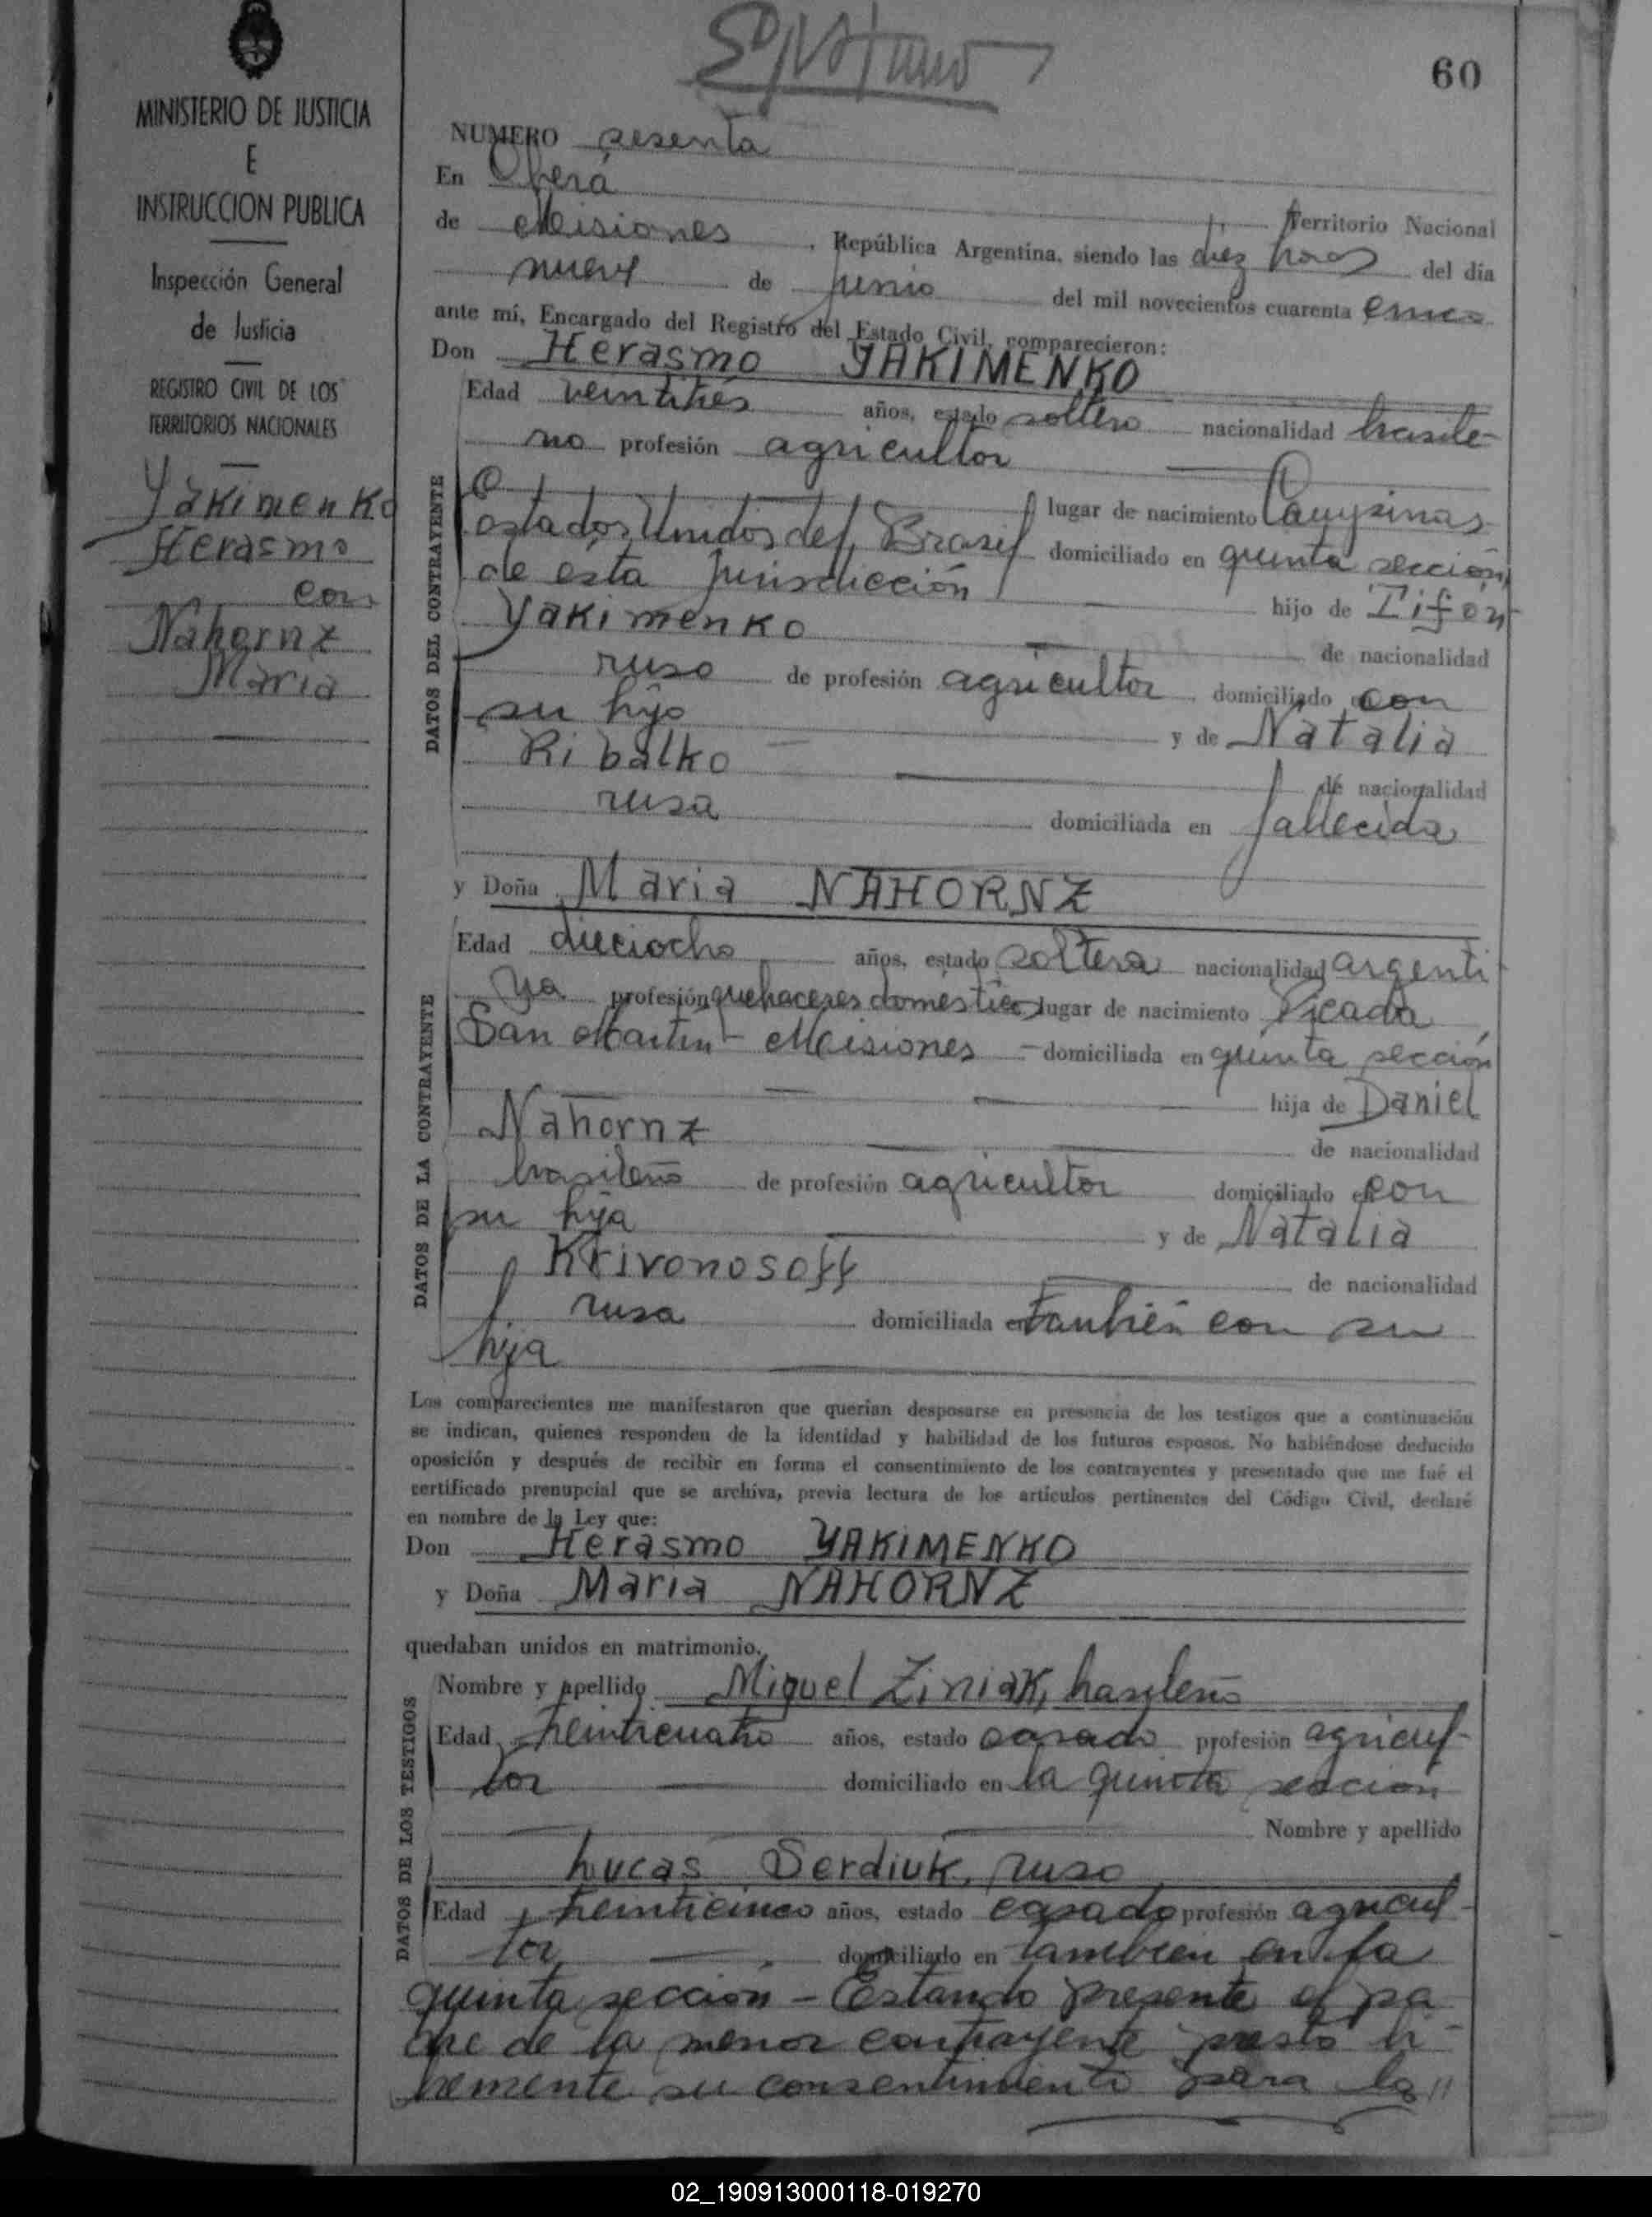 60
MINISTERIO DE JUSTICIA
E
INSTRUCCION PUBLICA
Inspección General
de Justicia
REGISTRO CIVIL DE LOS
TERRITORIOS NACIONALES
Yakimenko
Herasmo
con
Nahornz
Maria
NUMERO sesenta
En Oberá
Territorio Nacional
de Misiones, República Argentina, siendo las diez horas del día
nueve de junio del mil novecientos cuarenta cinco
ante mí, Encargado del Registro del Estado Civil, comparecieron:
Don Herasmo YAKIMENKO
DATOS DEL CONTRAYENTE
Edad veintitrés años, estado soltero nacionalidad brasile-
no profesión agricultor
lugar de nacimiento Campinas
estados Unidos del Brasil domiciliado en quinta sección,
de esta Jurisdicción hijo de Tifón
Yakimenko de nacionalidad
ruso de profesión agricultor domiciliado con
su hijo y de Natalia
Ribalko de nacionalidad
rusa domiciliada en fallecida
y Doña Maria NAHORNZ
DATOS DE LA CONTRAYENTE
Edad dieciocho años, estado soltera nacionalidad argenti-
na profesión quehaceres domésticos lugar de nacimiento Picada
San Martín - Misiones - domiciliada en quinta sección
hija de Daniel
Nahornz de nacionalidad
brasileño de profesión agricultor domiciliado con
su hija y de Natalia
Krivonosoff de nacionalidad
rusa domiciliada en también con su
hija
Los comparecientes me manifestaron que querían desposarse en presencia de los testigos que a continuación
se indican, quienes responden de la identidad y habilidad de los futuros esposos. No habiéndose deducido
oposición y después de recibir en forma el consentimiento de los contrayentes y presentado que me fué el
certificado prenupcial que se archiva, previa lectura de los artículos pertinentes del Código Civil, declaré
en nombre de la Ley que:
Don Herasmo YAKIMENKO
y Doña Maria NAHORNZ
quedaban unidos en matrimonio.
DATOS DE LOS TESTIGOS
Nombre y apellido Miguel Ziniak, brasileño
Edad treinticuatro años, estado casado profesión agricul-
tor domiciliado en la quinta sección
Nombre y apellido
Lucas Serdiuk, ruso
Edad treinticinco años, estado casado profesión agricul-
tor domiciliado en también en la
quinta sección - Estando presente el pa
dre de la menor contrayente prestó li-
bremente su consentimiento para la "
02_190913000118-019270